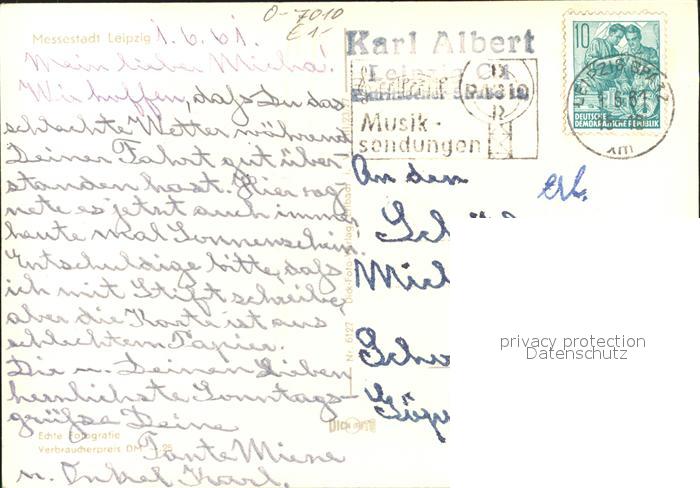 O-7010
E 1-
Messestadt Leipzig 1.6.61.
Mein lieber Micha!
Wir hoffen, daß Du das
schlechte Wetter während
Deiner Fahrt gut über-
standen hast. Hier reg-
nete es jetzt auch immer
heute mal Sonnenschein.
Entschuldige bitte, daß
ich mit Stift schreibe,
aber die Karte ist aus
schlechtem Papier.
Dir u. Deinen Lieben
herrlichste Sonntags-
grüße Deine
Tante Miene
u. Onkel Karl.
Echte Fotografie
Verbraucherpreis DM -,25
Nr. 6127 Dick-Foto-Verlag
Karl Albert
Leipzig C1
RADIO
Musik-
sendungen
LEIPZIG BPA 32
10
DEUTSCHE
DEMOKRATISCHE REPUBLIK
xm
An den
Mich
privacy protection
Datenschutz